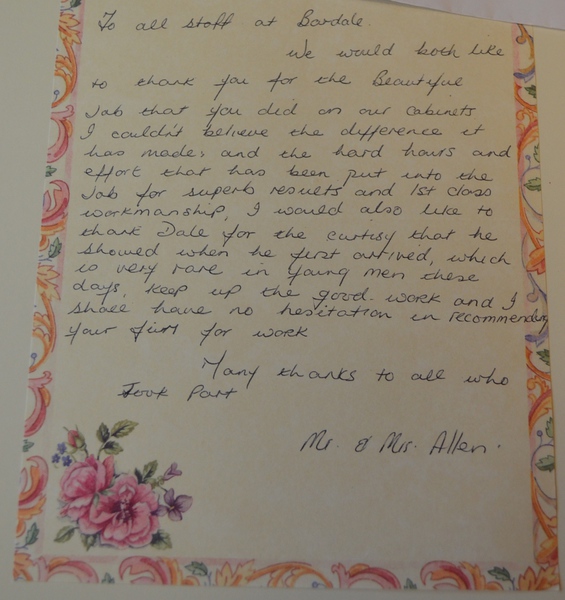 To all staff at Bardale.
We would both like
to thank you for the Beautiful
Job that you did on our cabinets
I couldn't believe the difference it
has made, and the hard hours and
effort that has been put into the
Job for superb results and 1st class
workmanship, I would also like to
thank Dale for the curtisy that he
showed when he first arrived, which
is very rare in young men these
days, keep up the good work and I
shall have no hesitation in recommending
your firm for work
Many thanks to all who
took Part
Mr. & Mrs. Allen.